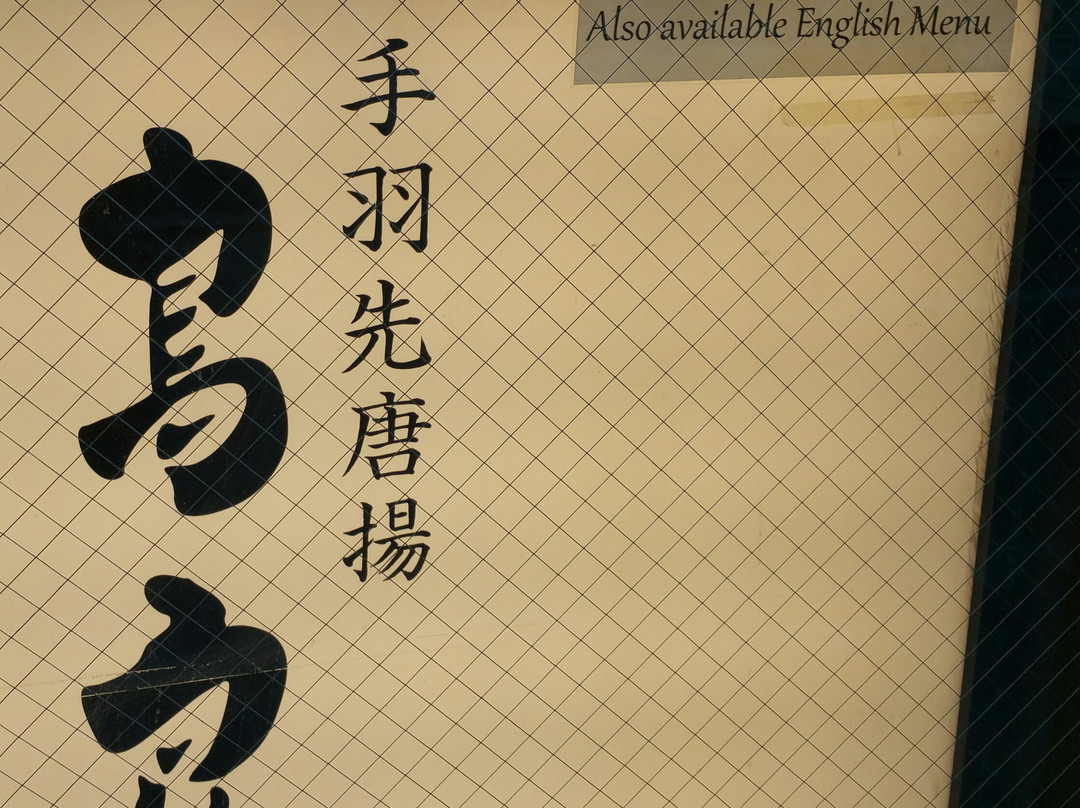 Also available English Menu
手羽先唐揚
鳥